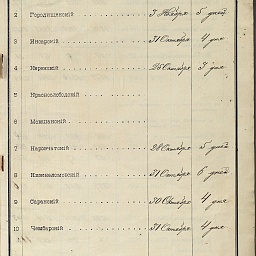 2 Городищенскій 3 Ноября 5 дней
3 Инсарскій 31 Октября 4 дня
4 Керенскій 25 Октября 3 дня
5 Краснослободскій
6 Мокшанскій
7 Наровчатскій 28 Октября 5 дней
8 Нижнеломовскій 31 Октября 6 дней
9 Саранскій 30 Октября 4 дня
10 Чембарскій 31 Октября 4 дня